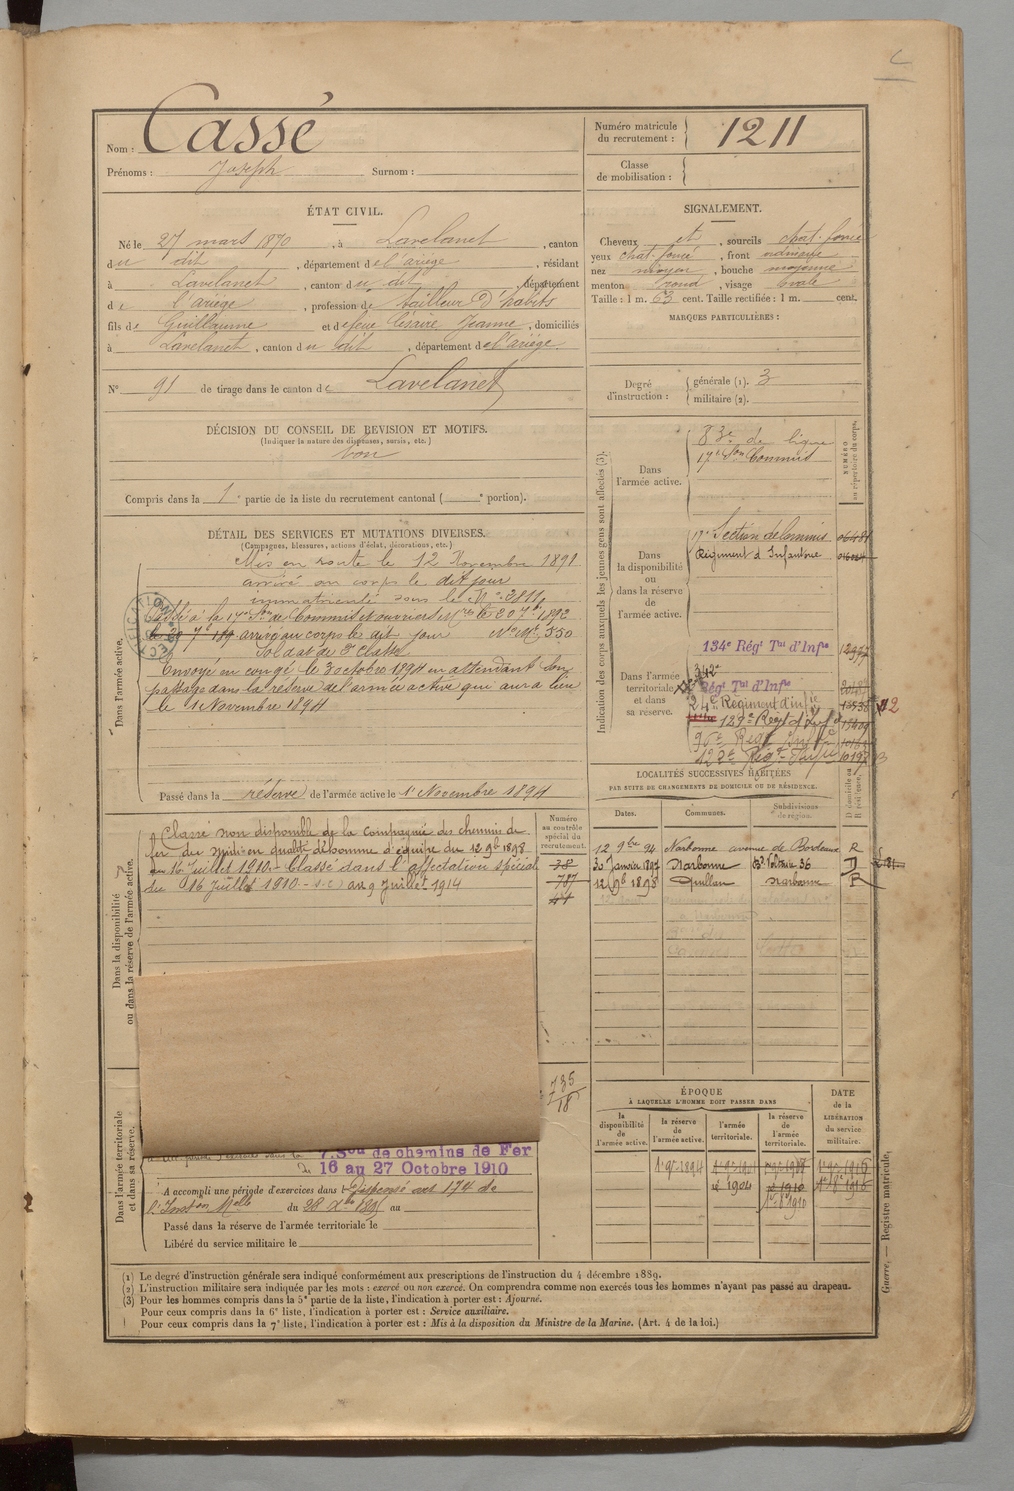 Nom : Cassé
Prénoms : Joseph Surnom :
Numéro matricule du recrutement : 1211
Classe de mobilisation :
ÉTAT CIVIL.
Né le 27 mars 1870, à Lavelanet, canton
du dit, département de l'ariège, résidant
à Lavelanet, canton du dit, département
de l'ariège, profession de tailleur d'habits
fils de Guillaume et de feue Césaire Jeanne, domiciliés
à Lavelanet, canton du dit, département de l'ariège.
N° 91 de tirage dans le canton de Lavelanet
SIGNALEMENT.
Cheveux et, sourcils chat. foncé
yeux chat. foncé, front ordinaire
nez moyen, bouche moyenne
menton rond, visage ovale
Taille : 1 m. 63 cent. Taille rectifiée : 1 m. cent.
MARQUES PARTICULIÈRES :
Degré d'instruction : générale (1). 3
militaire (2).
DÉCISION DU CONSEIL DE REVISION ET MOTIFS.
(Indiquer la nature des dispenses, sursis, etc.)
bon
Compris dans la 1e partie de la liste du recrutement cantonal ( e portion).
DÉTAIL DES SERVICES ET MUTATIONS DIVERSES.
(Campagnes, blessures, actions d'éclat, décorations, etc.)
Dans l'armée active.
Mis en route le 12 Novembre 1891
arrivé au corps le dit jour
immatriculé sous le N° 3811
à la 17e Son de Commis et ouvriers le 20 7bre 1892
arrivé au corps le dit jour N° Mle 550
Soldat de 2e classe
Envoyé en congé le 3 octobre 1894 en attendant son
passage dans la réserve de l'armée active qui aura lieu
le 1 Novembre 1894
Passé dans la réserve de l'armée active le 1r Novembre 1894
Indication des corps auxquels les jeunes gens sont affectés (3).
NUMÉRO au répertoire du corps.
Dans l'armée active.
83e de ligne
17e Son Commis
Dans la disponibilité ou dans la réserve de l'armée active.
17e Section de Commis
Régiment d'Infanterie
Dans l'armée territoriale et dans sa réserve.
134e Régt Tal d'Infie 12977
342e
Régt Tal d'Infie
24e Régiment d'infie
129e Régt d'Infie
96e Régt Infie
122e Régt Infie
LOCALITÉS SUCCESSIVES HABITÉES
PAR SUITE DE CHANGEMENTS DE DOMICILE OU DE RÉSIDENCE.
Dates. Communes. Subdivisions de région. D domicile ou R résidence.
12 9bre 94 Narbonne avenue de Bordeaux R
30 Janvier 1897 Narbonne Bd Voltaire 36 D
12 9b 1898 Quillan Narbonne R
Dans la disponibilité ou dans la réserve de l'armée active.
Numéro au contrôle spécial du recrutement.
Classé non disponible de la Compagnie des chemins de
fer du Midi en qualité d'homme d'équipe du 12 9b 1898
au 16 juillet 1910 - Classé dans l'affectation spéciale
du 16 Juillet 1910 au 9 Juillet 1914
38
787
44
735
18
Dans l'armée territoriale et dans sa réserve.
7. Son de chemins de Fer
Du 16 au 27 Octobre 1910
A accompli une période d'exercices dans Dispensé art 174 de
l'Inston Melle du 28 Xbre 1895 au
Passé dans la réserve de l'armée territoriale le
Libéré du service militaire le
ÉPOQUE
À LAQUELLE L'HOMME DOIT PASSER DANS
la disponibilité de l'armée active. la réserve de l'armée active. l'armée territoriale. la réserve de l'armée territoriale.
DATE de la LIBÉRATION du service militaire.
1r 9b 1894
1904
1910
Guerre. — Registre matricule.
(1) Le degré d'instruction générale sera indiqué conformément aux prescriptions de l'instruction du 4 décembre 1889.
(2) L'instruction militaire sera indiquée par les mots : exercé ou non exercé. On comprendra comme non exercés tous les hommes n'ayant pas passé au drapeau.
(3) Pour les hommes compris dans la 5e partie de la liste, l'indication à porter est : Ajourné.
Pour ceux compris dans la 6e liste, l'indication à porter est : Service auxiliaire.
Pour ceux compris dans la 7e liste, l'indication à porter est : Mis à la disposition du Ministre de la Marine. (Art. 4 de la loi.)